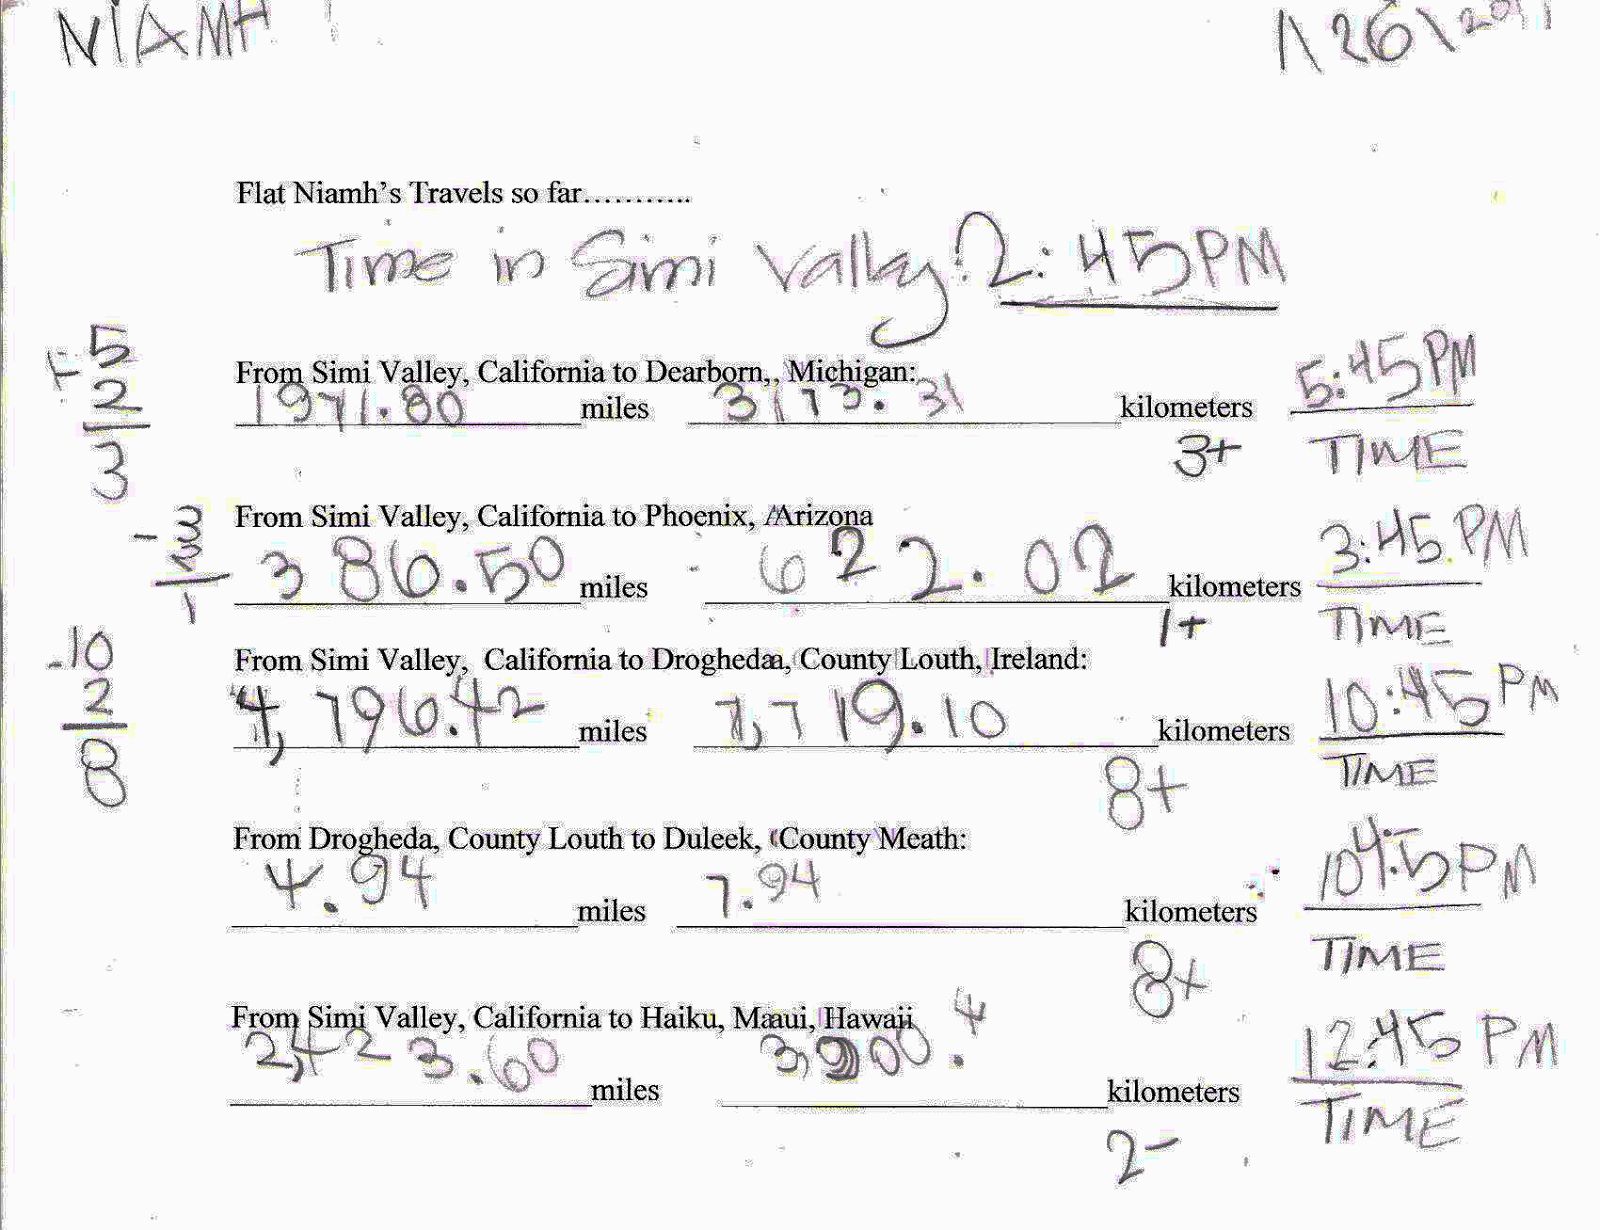 NIAMH 1\26\2011
Flat Niamh's Travels so far...........
Time in Simi Vallky: 2:45PM
From Simi Valley, California to Dearborn,, Michigan:
1971.80 miles 3173.31 kilometers 5:45PM
5
2
3
3+ TIME
From Simi Valley, California to Phoenix, Arizona
-3
386.50 miles 622.02 kilometers 3:45 PM
1
1+ TIME
-10
2
8
From Simi Valley, California to Droghedaa, County Louth, Ireland:
4,796.42 miles 7,719.10 kilometers 10:45 PM
8+ TIME
From Drogheda, County Louth to Duleek, County Meath:
4.94 miles 7.94 kilometers 104:5PM
8+ TIME
From Simi Valley, California to Haiku, Maaui, Hawaii
2,423.60 miles 3,900.4 kilometers 12:45 PM
2- TIME